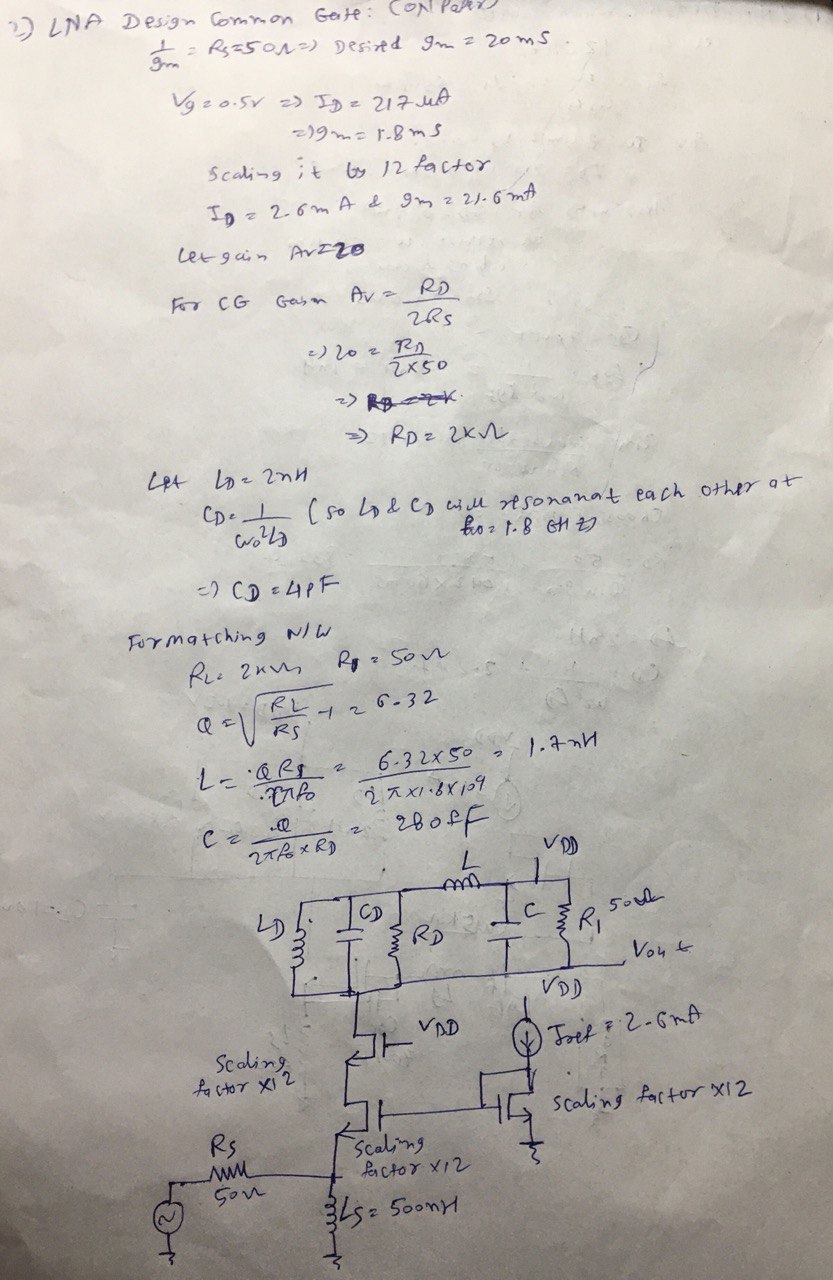 2) LNA Design Common Gate: (ON Paper)
1/gm = Rs = 50Ω => Desired gm = 20 mS
Vg = 0.5V => ID = 217 μA
=> gm = 1.8 mS
Scaling it by 12 factor
ID = 2.6 mA & gm = 21.6 mA
Let gain Av = 20
For CG Gain Av = RD / 2RS
=> 20 = RD / 2×50
=> RD = 2K
=> RD = 2KΩ
Let LD = 2nH
CD = 1 / ω0²LD (so LD & CD will resonanat each other at
f0 = 1.8 GHz)
=> CD = 4pF
For matching N/W
RL = 2KΩ, RS = 50Ω
Q = √(RL/RS - 1) = 6.32
L = QRS / 2πf0 = 6.32×50 / 2π×1.8×10^9 = 1.7nH
C = Q / 2πf0×RD = 280fF
L
VDD
LD
CD
RD
C
R1 50Ω
Vout
VDD
VDD
Iref = 2.6mA
Scaling
factor ×12
Scaling factor ×12
Scaling
factor ×12
Rs
50Ω
LS = 500nH